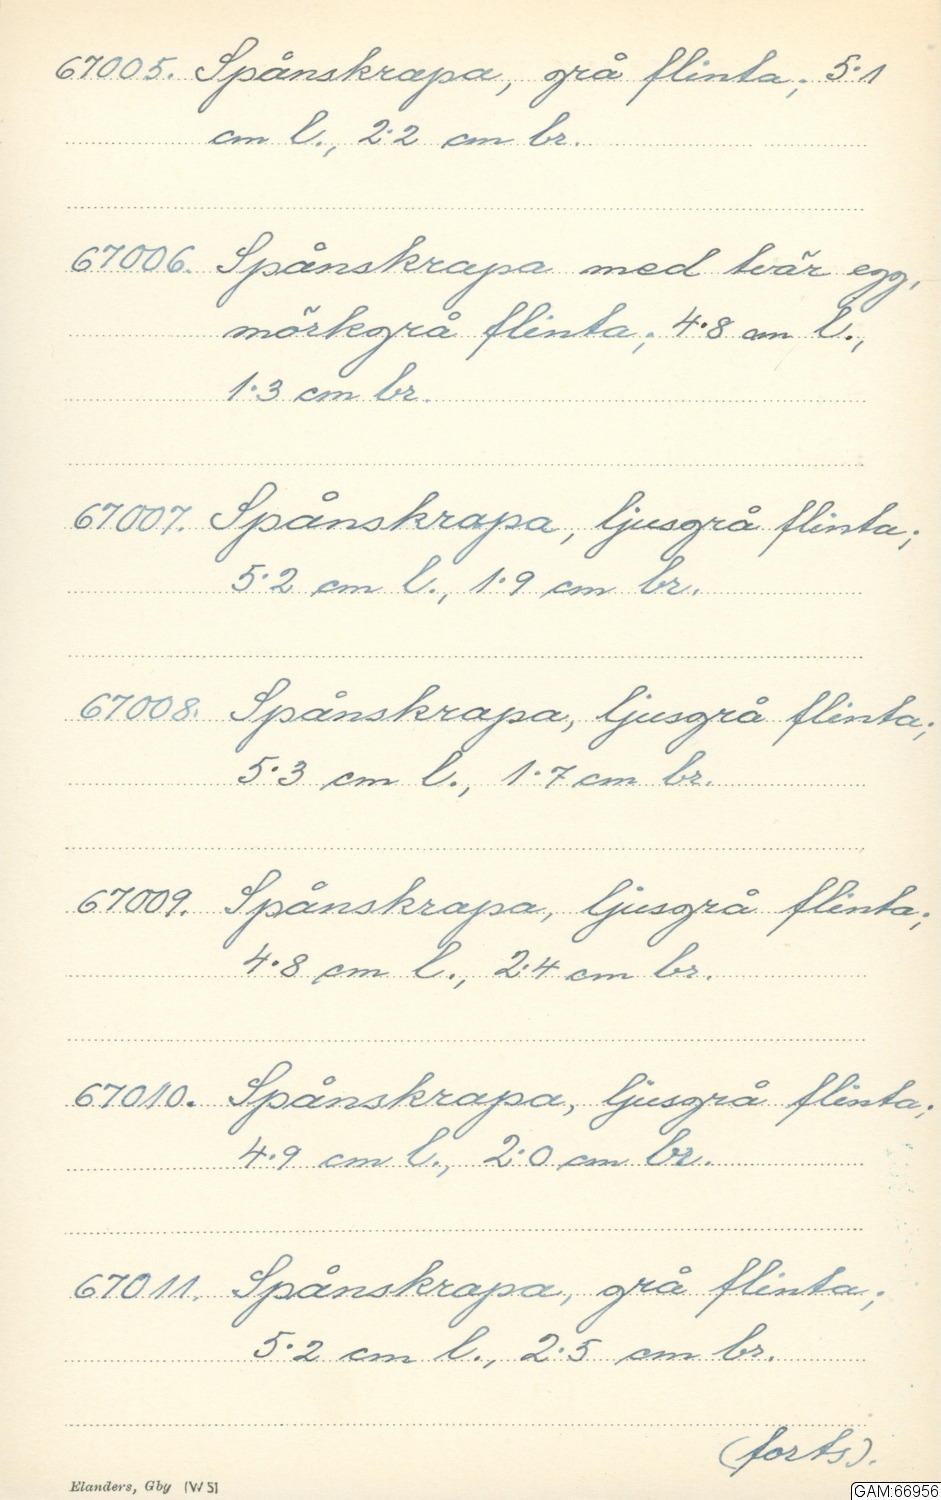 67005. Spånskrapa, grå flinta; 5·1
cm l., 2·2 cm br.
67006. Spånskrapa med tvär egg,
mörkgrå flinta; 4·8 cm l.,
1·3 cm br.
67007. Spånskrapa, ljusgrå flinta;
5·2 cm l., 1·9 cm br.
67008. Spånskrapa, ljusgrå flinta;
5·3 cm l., 1·7 cm br.
67009. Spånskrapa, ljusgrå flinta;
4·8 cm l., 2·4 cm br.
67010. Spånskrapa, ljusgrå flinta;
4·9 cm l., 2·0 cm br.
67011. Spånskrapa, grå flinta;
5·2 cm l., 2·5 cm br.
(forts).
Elanders, Gby (W5)
GAM:66956